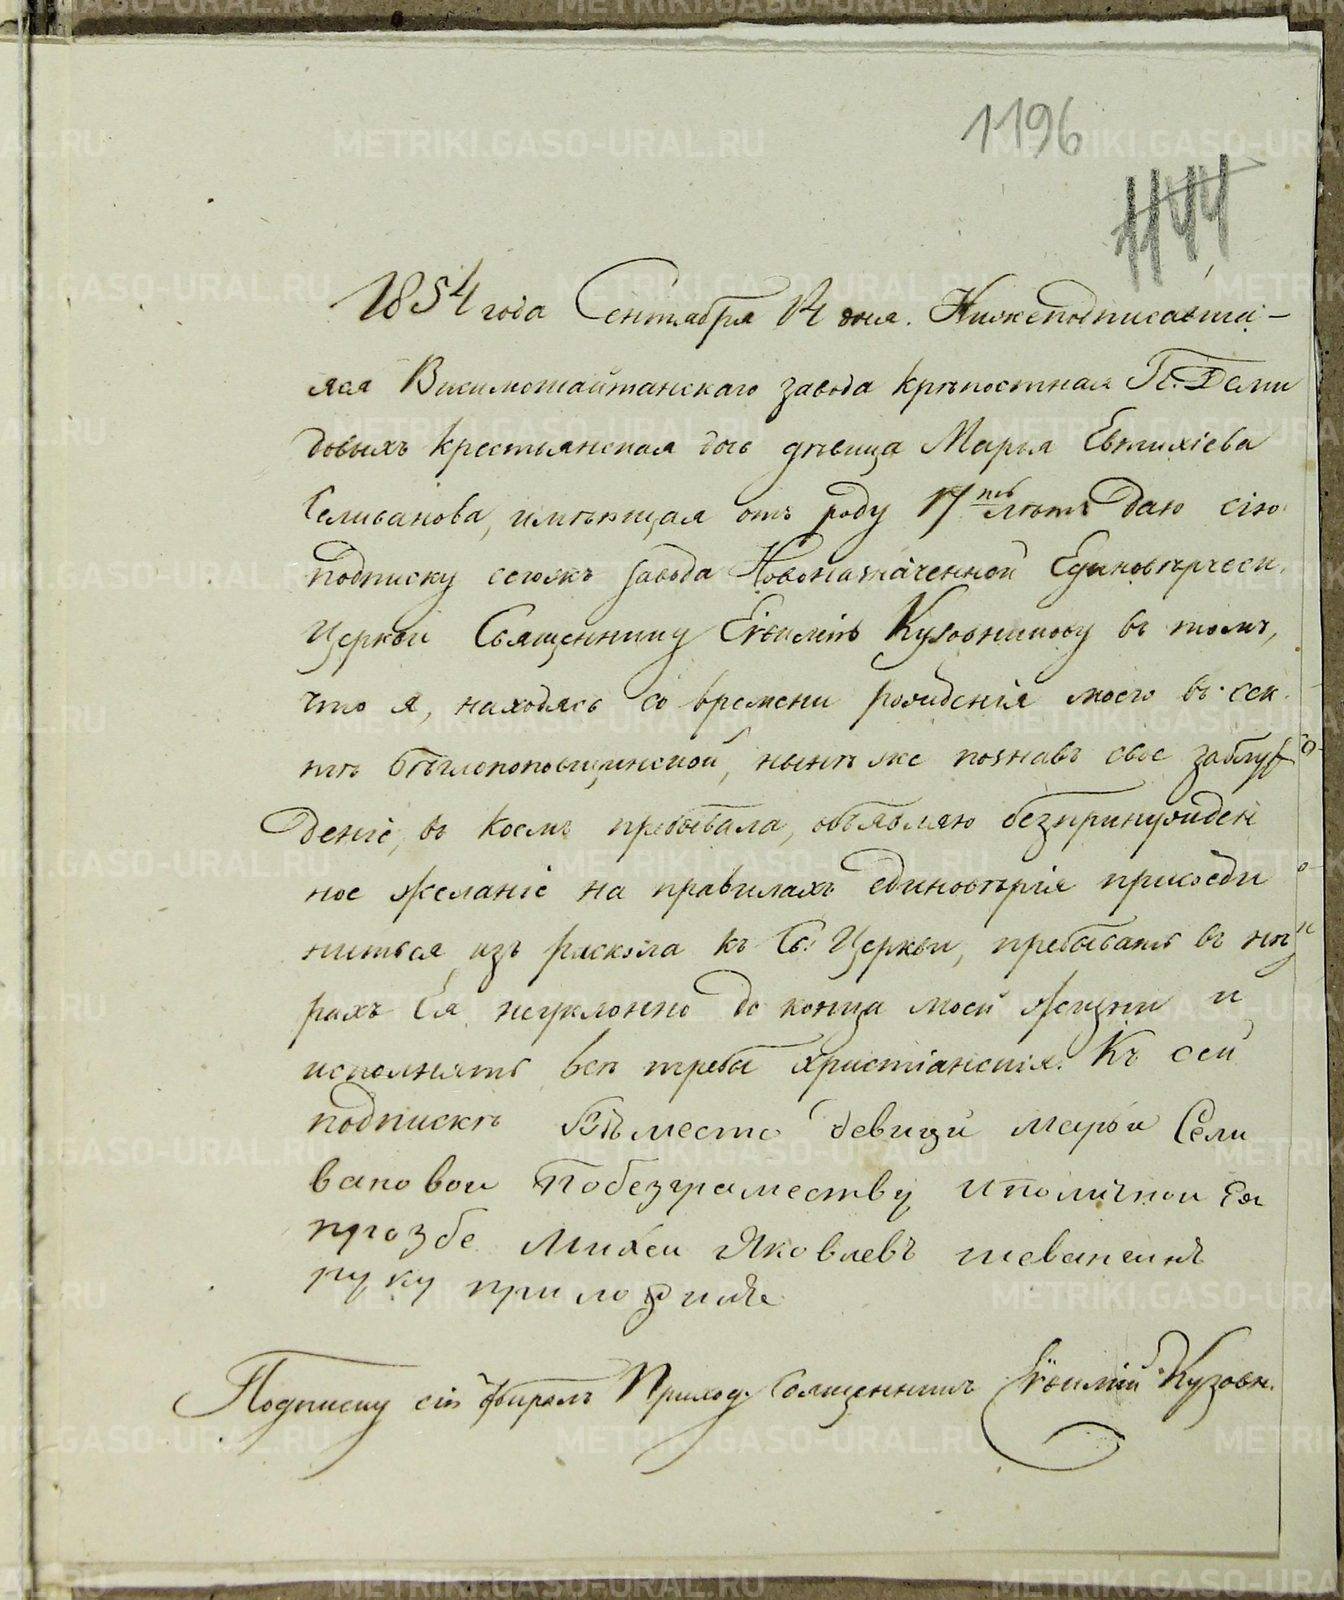 1196
1144
1854 года Сентября 14 дня. Нижеподписавша-
яся Висимошайтанскаго завода крѣпостная Гг. Деми
довыхъ крестьянская дочь дѣвица Марья Евтихіева
Селиванова, имѣющая отъ роду 17ть лѣтъ даю сію
подписку сегожъ завода Новоназначенной Единовѣрческ.
Церкви Священнику Евѳимію Кузовникову въ томъ,
что я, находясь со времени рожденія моего въ сек
тѣ бѣглопоповщинской, нынѣ же познавъ свое заблуж
деніе, въ коемъ пребывала, объявляю безпринужден
ное желаніе на правилахъ единовѣрія присоеди
ниться изъ раскола къ Св. Церкви, пребывать въ нѣд
рахъ Ея неуклонно до конца моей жизни и
исполнять всѣ требы христіанскія. Къ сей
подпискѣ Въместо девици марьи Сели
вановои Побезграместву иполичнои Ея
прозбе Михеи Яковлевъ
руку приложилъ
Подписку сію отбиралъ Приход. Священникъ Евѳимій Кузовн.